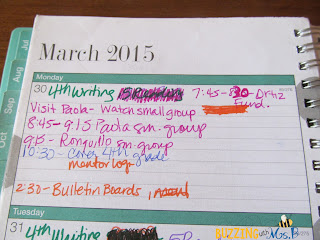 March 2015
Monday
30 4th Writing 7:45-8:30 Ortiz
Fund.
Visit Paola - Watch small group
8:45-9:15 Paola sm. group
9:15 - Ronquillo sm. group
10:30 - Cover 4th grade
mentor log
2:30 - Bulletin Boards,
Tuesday
31 4th Writing
Oct
Sep
Aug
Jul
BUZZING with Ms. B